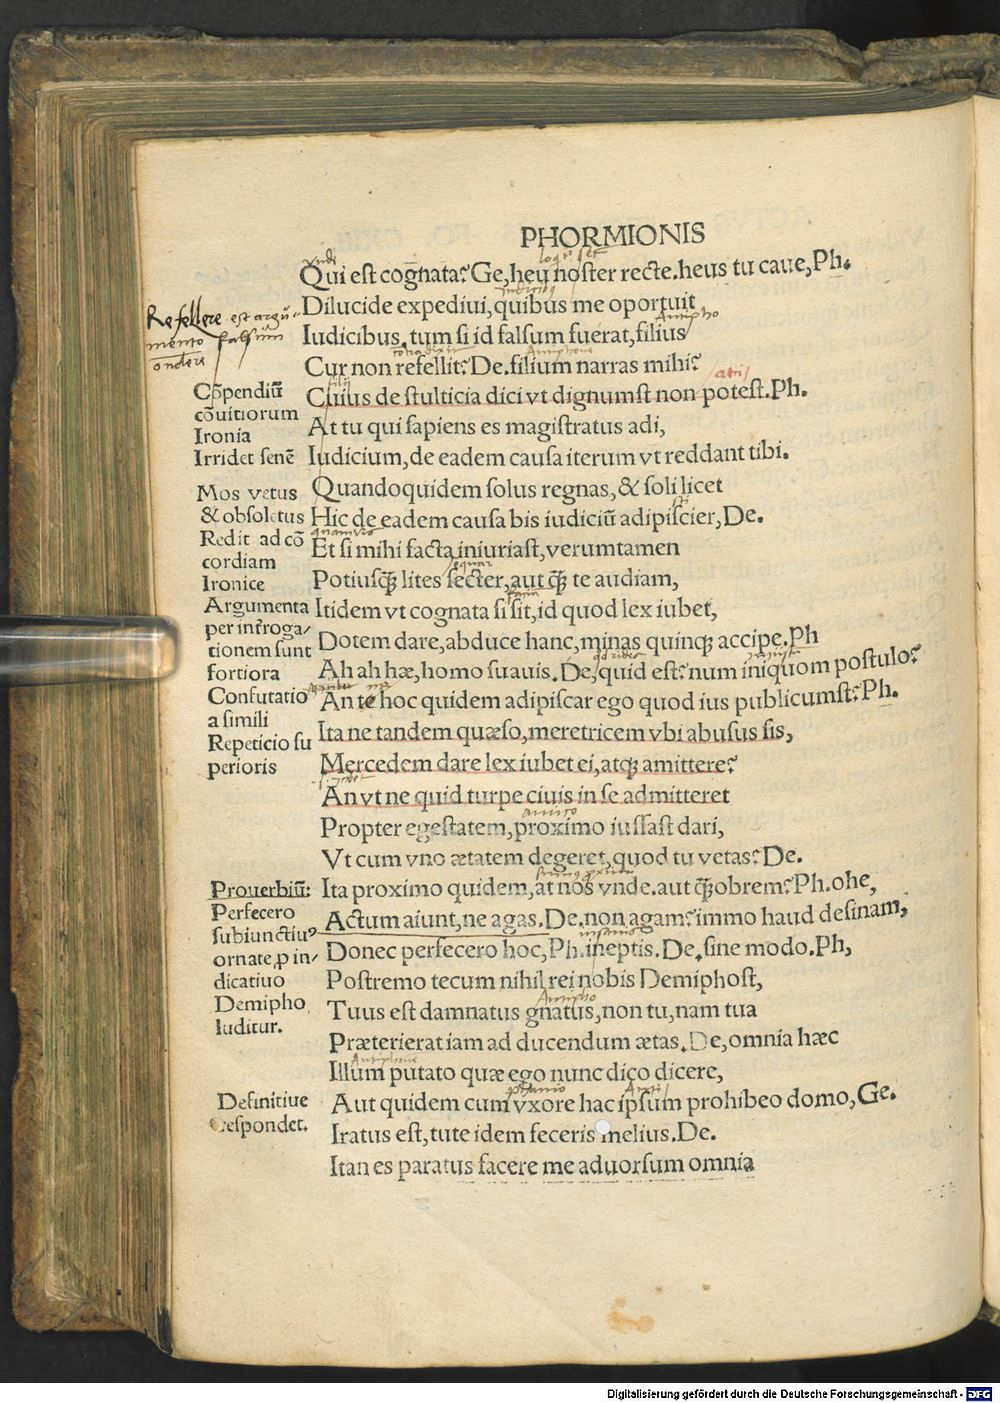 PHORMIONIS
Qui est cognata? Ge, heu noster recte. heus tu caue, Ph.
Dilucide expediui, quibus me oportuit
Iudicibus. tum si id falsum fuerat, filius
Cur non refellit? De. filium narras mihi?
Cuius de stulticia dici vt dignumst non potest. Ph.
At tu qui sapiens es magistratus adi,
Iudicium, de eadem causa iterum vt reddant tibi.
Quandoquidem solus regnas, & soli licet
Hic de eadem causa bis iudiciũ adipiscier, De.
Et si mihi facta iniuriast, verumtamen
Potiusq̃ lites secter, aut q̃ te audiam,
Itidem vt cognata si sit, id quod lex iubet,
Dotem dare, abduce hanc, minas quinqꝫ accipe. Ph
Ah ah hæ, homo suauis. De, quid est? num iniquom postulo?
An te hoc quidem adipiscar ego quod ius publicumst? Ph.
Ita ne tandem quæso, meretricem vbi abusus sis,
Mercedem dare lex iubet ei, atqꝫ amittere?
An vt ne quid turpe ciuis in se admitteret
Propter egestatem, proximo iussast dari,
Vt cum vno ætatem degeret, quod tu vetas? De.
Ita proximo quidem, at nos vnde. aut q̃obrem? Ph. ohe,
Actum aiunt, ne agas. De. non agam? immo haud desinam,
Donec perfecero hoc, Ph. ineptis. De, sine modo. Ph,
Postremo tecum nihil rei nobis Demiphost,
Tuus est damnatus gnatus, non tu, nam tua
Præterierat iam ad ducendum ætas. De, omnia hæc
Illum putato quæ ego nunc dico dicere,
Aut quidem cum vxore hac ipsum prohibeo domo, Ge.
Iratus est, tute idem feceris melius. De.
Itan es paratus facere me aduorsum omnia
Refellere est argu-
mento falsum
ondere
Cõpendiũ
cõuitiorum
Ironia
Irridet senẽ
Mos vetus
& obsoletus
Redit ad cõ
cordiam
Ironice
Argumenta
per inrroga/
tionem sunt
fortiora
Confutatio
a simili
Repeticio su
perioris
Prouerbiũ:
Perfecero
subiunctiuꝰ
ornate, p in/
dicatiuo
Demipho
luditur.
Definitiue
respondet.
Digitalisierung gefördert durch die Deutsche Forschungsgemeinschaft - DFG